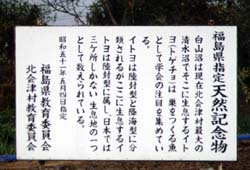 福島県指定天然記念物
白山沼は現在北会津村最大の
清水沼でそこに生息するイト
ヨ(トゲチョ)は巣をつくる魚
として学会の注目を集めてい
る。
イトヨは陸封型と降海型に分
類されるがここに生息するイ
トヨは陸封型に属し、日本では
三ヶ所しかない生息地の一つ
として数えられている。
昭和五十一年五月四日指定
福島県教育委員会
北会津村教育委員会